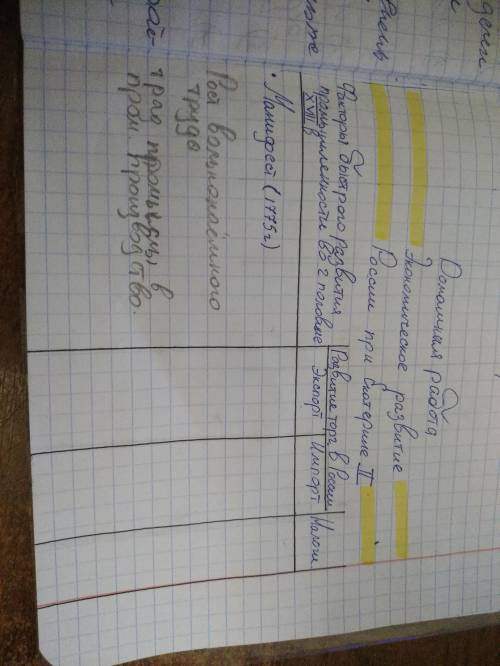 Домашняя работа
Экономическое развитие
России при Екатерине II
Факторы быстрого развития
промышленности во 2 половине
XVIII в
Развитие торг. в России
Экспорт Импорт
Налоги
• Манифест (1775г)
Рост вольнонаёмного
труда
промыслы в
пром. производство.